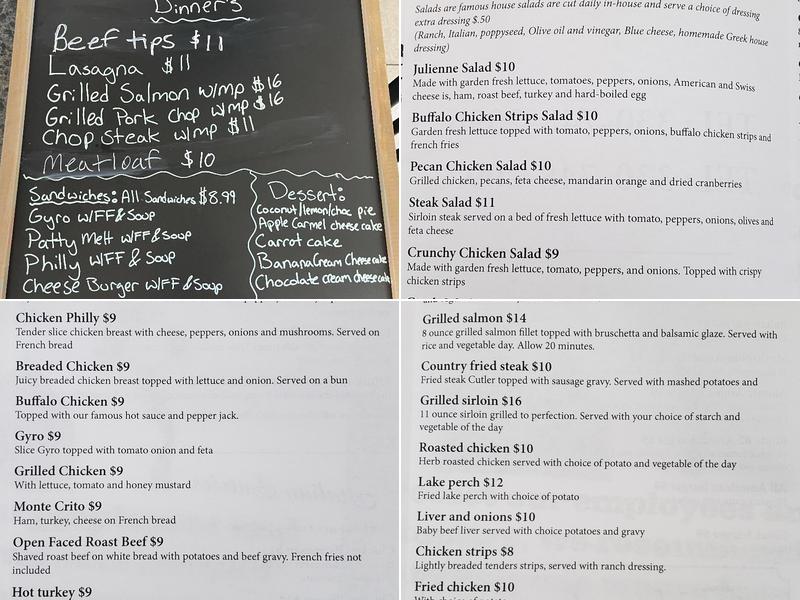 Dinner's
Beef tips $11
Lasagna $11
Grilled Salmon w/mp $16
Grilled Pork Chop w/mp $16
Chop Steak w/mp $11
Meatloaf $10
Sandwiches: All Sandwiches $8.99
Gyro W/FF & Soup
Patty Melt W/FF & Soup
Philly W/FF & Soup
Cheese Burger W/FF & Soup
Dessert:
Coconut/lemon/choc pie
Apple Carmel cheese cake
Carrot cake
Banana Cream Cheese cake
Chocolate cream cheese cake
Salads are famous house salads are cut daily in-house and serve a choice of dressing
extra dressing $.50
(Ranch, Italian, poppyseed, Olive oil and vinegar, Blue cheese, homemade Greek house
dressing)
Julienne Salad $10
Made with garden fresh lettuce, tomatoes, peppers, onions, American and Swiss
cheese is, ham, roast beef, turkey and hard-boiled egg
Buffalo Chicken Strips Salad $10
Garden fresh lettuce topped with tomato, peppers, onions, buffalo chicken strips and
french fries
Pecan Chicken Salad $10
Grilled chicken, pecans, feta cheese, mandarin orange and dried cranberries
Steak Salad $11
Sirloin steak served on a bed of fresh lettuce with tomato, peppers, onions, olives and
feta cheese
Crunchy Chicken Salad $9
Made with garden fresh lettuce, tomato, peppers, and onions. Topped with crispy
chicken strips
Chicken Philly $9
Tender slice chicken breast with cheese, peppers, onions and mushrooms. Served on
French bread
Breaded Chicken $9
Juicy breaded chicken breast topped with lettuce and onion. Served on a bun
Buffalo Chicken $9
Topped with our famous hot sauce and pepper jack.
Gyro $9
Slice Gyro topped with tomato onion and feta
Grilled Chicken $9
With lettuce, tomato and honey mustard
Monte Crito $9
Ham, turkey, cheese on French bread
Open Faced Roast Beef $9
Shaved roast beef on white bread with potatoes and beef gravy. French fries not
included
Hot turkey $9
Grilled salmon $14
8 ounce grilled salmon fillet topped with bruschetta and balsamic glaze. Served with
rice and vegetable day. Allow 20 minutes.
Country fried steak $10
Fried steak Cutler topped with sausage gravy. Served with mashed potatoes and
Grilled sirloin $16
11 ounce sirloin grilled to perfection. Served with your choice of starch and
vegetable of the day
Roasted chicken $10
Herb roasted chicken served with choice of potato and vegetable of the day
Lake perch $12
Fried lake perch with choice of potato
Liver and onions $10
Baby beef liver served with choice potatoes and gravy
Chicken strips $8
Lightly breaded tenders strips, served with ranch dressing.
Fried chicken $10